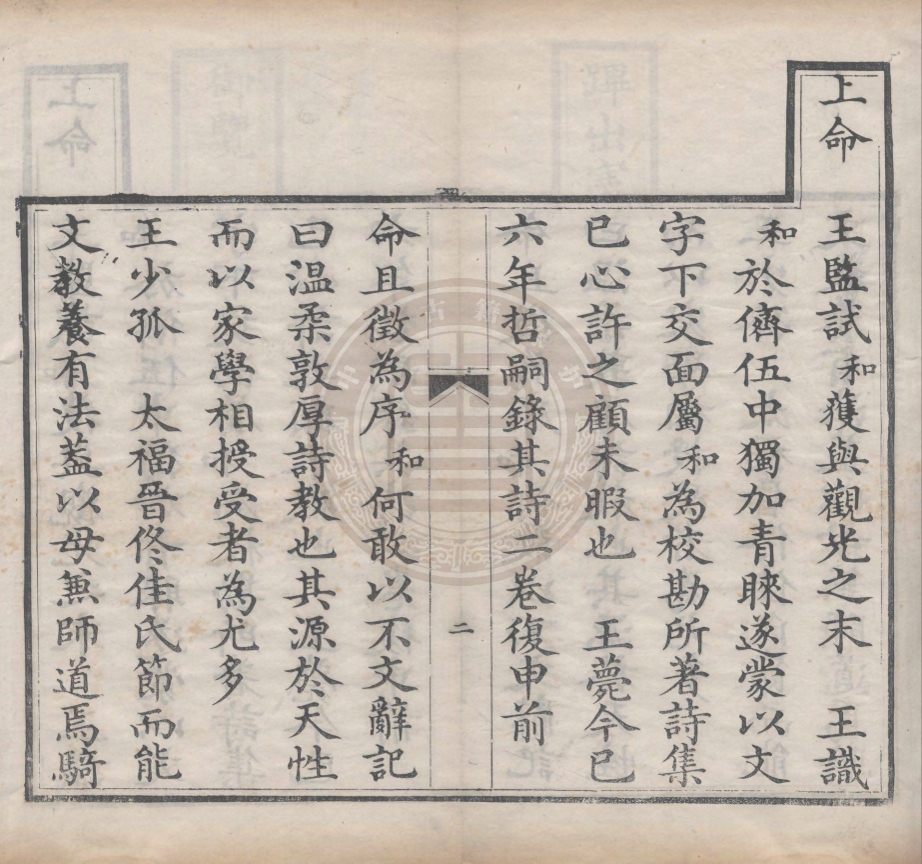 上命
王監試和獲與觀光之末　王識
和於儕伍中獨加青睞遂蒙以文
字下交面屬和為校勘所著詩集
已心許之顧未暇也　王薨今已
六年哲嗣錄其詩二卷復申前
二
命且徵為序和何敢以不文辭記
曰温柔敦厚詩教也其源於天性
而以家學相授受者為尤多
王少孤　太福晉佟佳氏節而能
文教養有法蓋以母兼師道焉騎